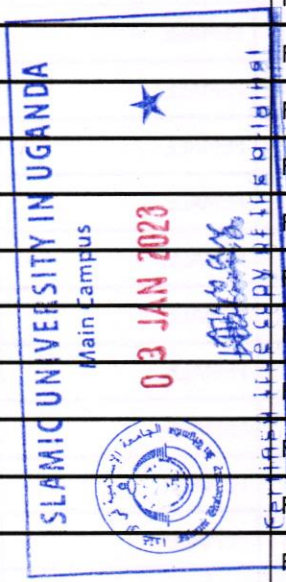 SLAMIC UNIVERSITY IN UGANDA
Main Campus
03 JAN 2023
Certified true copy of the original
الجامعة الإسلامية في أوغندا